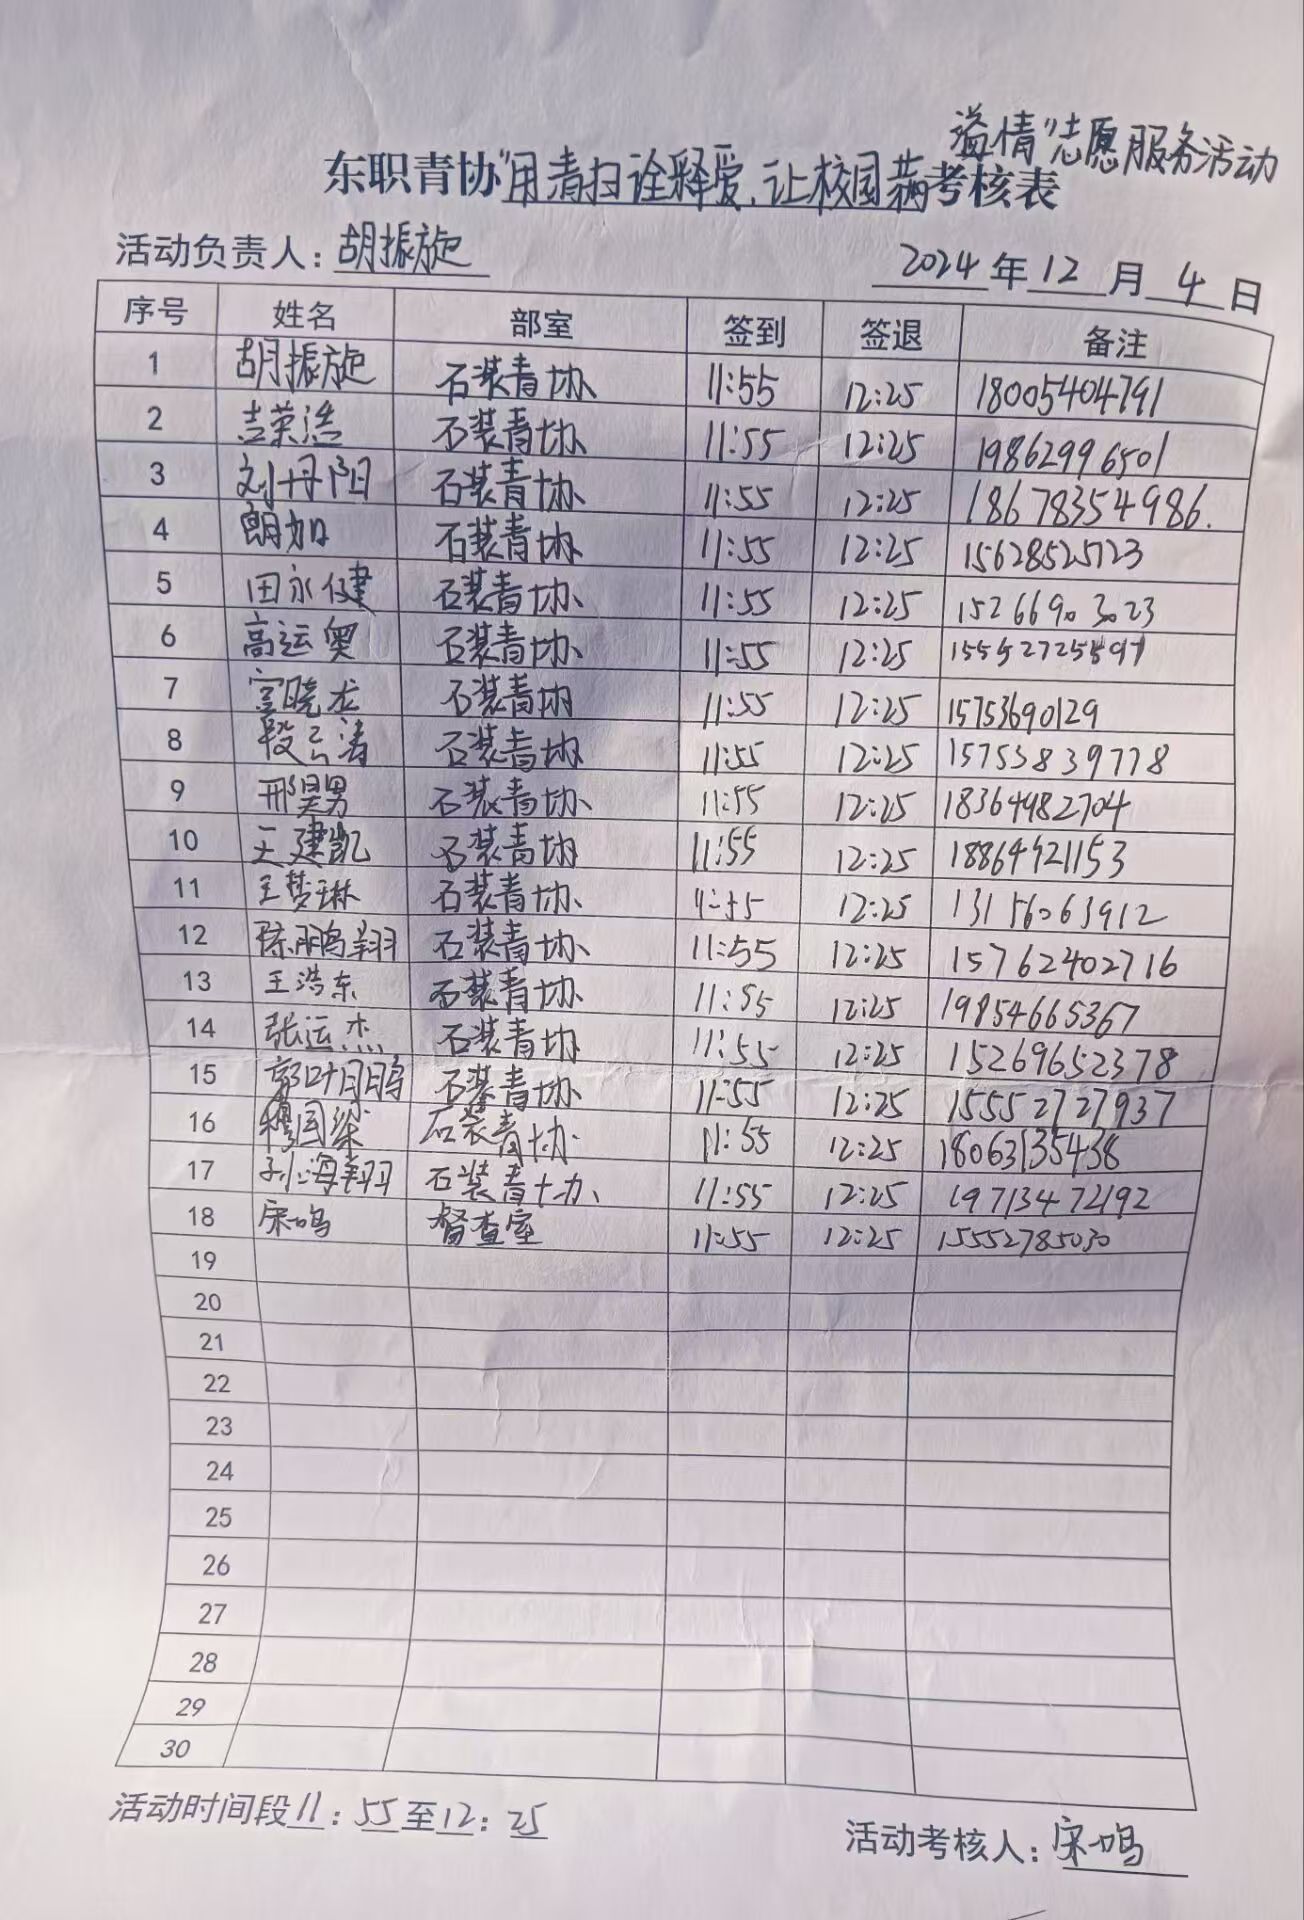 溢情"志愿服务活动
东职青协"用清扫诠释爱,让校园满考核表
活动负责人:胡振旋 2024年12月4日
序号 姓名 部室 签到 签退 备注
1 胡振旋 石装青协 11:55 12:25 18005404791
2 吉荣浩 石装青协 11:55 12:25 19862996501
3 刘丹阳 石装青协 11:55 12:25 18678354986.
4 朗加 石装青协 11:55 12:25 15628525723
5 田永健 石装青协 11:55 12:25 15266903023
6 高运奥 石装青协 11:55 12:25
7 宫晓龙 石装青协 11:55 12:25 15753690129
8 段云涛 石装青协 11:55 12:25 15753839778
9 邢昊男 石装青协 11:55 12:25 18364982704
10 王建凯 石装青协 11:55 12:25 18864921153
11 王梦琳 石装青协 12:25 13156063912
12 陈鹏翔 石装青协 11:55 12:25 15762402716
13 王浩东 石装青协 11:55 12:25 19854665367
14 张运杰 石装青协 11:55 12:25 15269652378
15 郭叶鹏 石装青协 11:55 12:25 15552727937
16 穆国梁 石装青协 11:55 12:25 18063135438
17 孙海翔 石装青协 11:55 12:25 19713472192
18 宋鸣 督查室 11:55 12:25 15552785030
19
20
21
22
23
24
25
26
27
28
29
30
活动时间段11:55至12:25
活动考核人:宋鸣